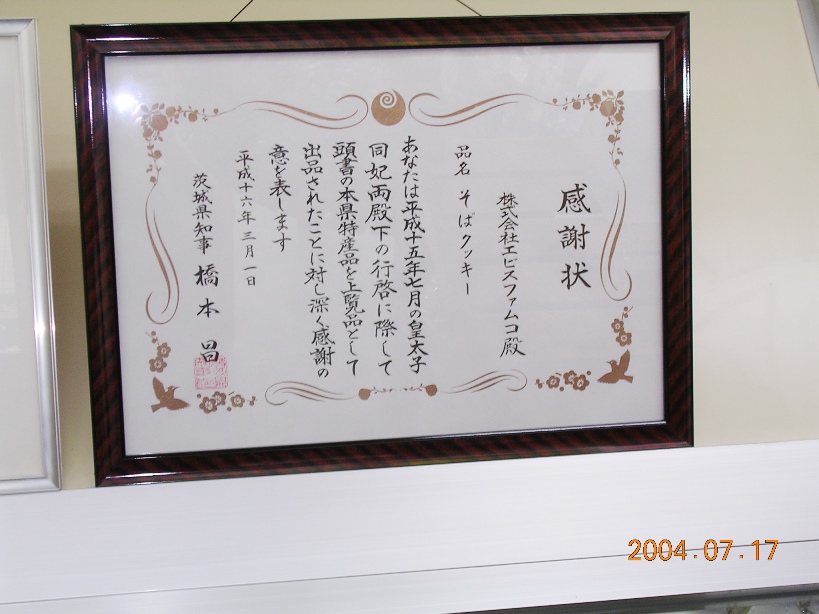 感謝状
株式会社エビスファムコ殿
品名 そばクッキー
あなたは平成十五年七月の皇太子
同妃両殿下の行啓に際して
頭書の本県特産品を上覧品として
出品されたことに対し深く感謝の
意を表します
平成十六年三月一日
茨城県知事 橋本昌
2004.07.17